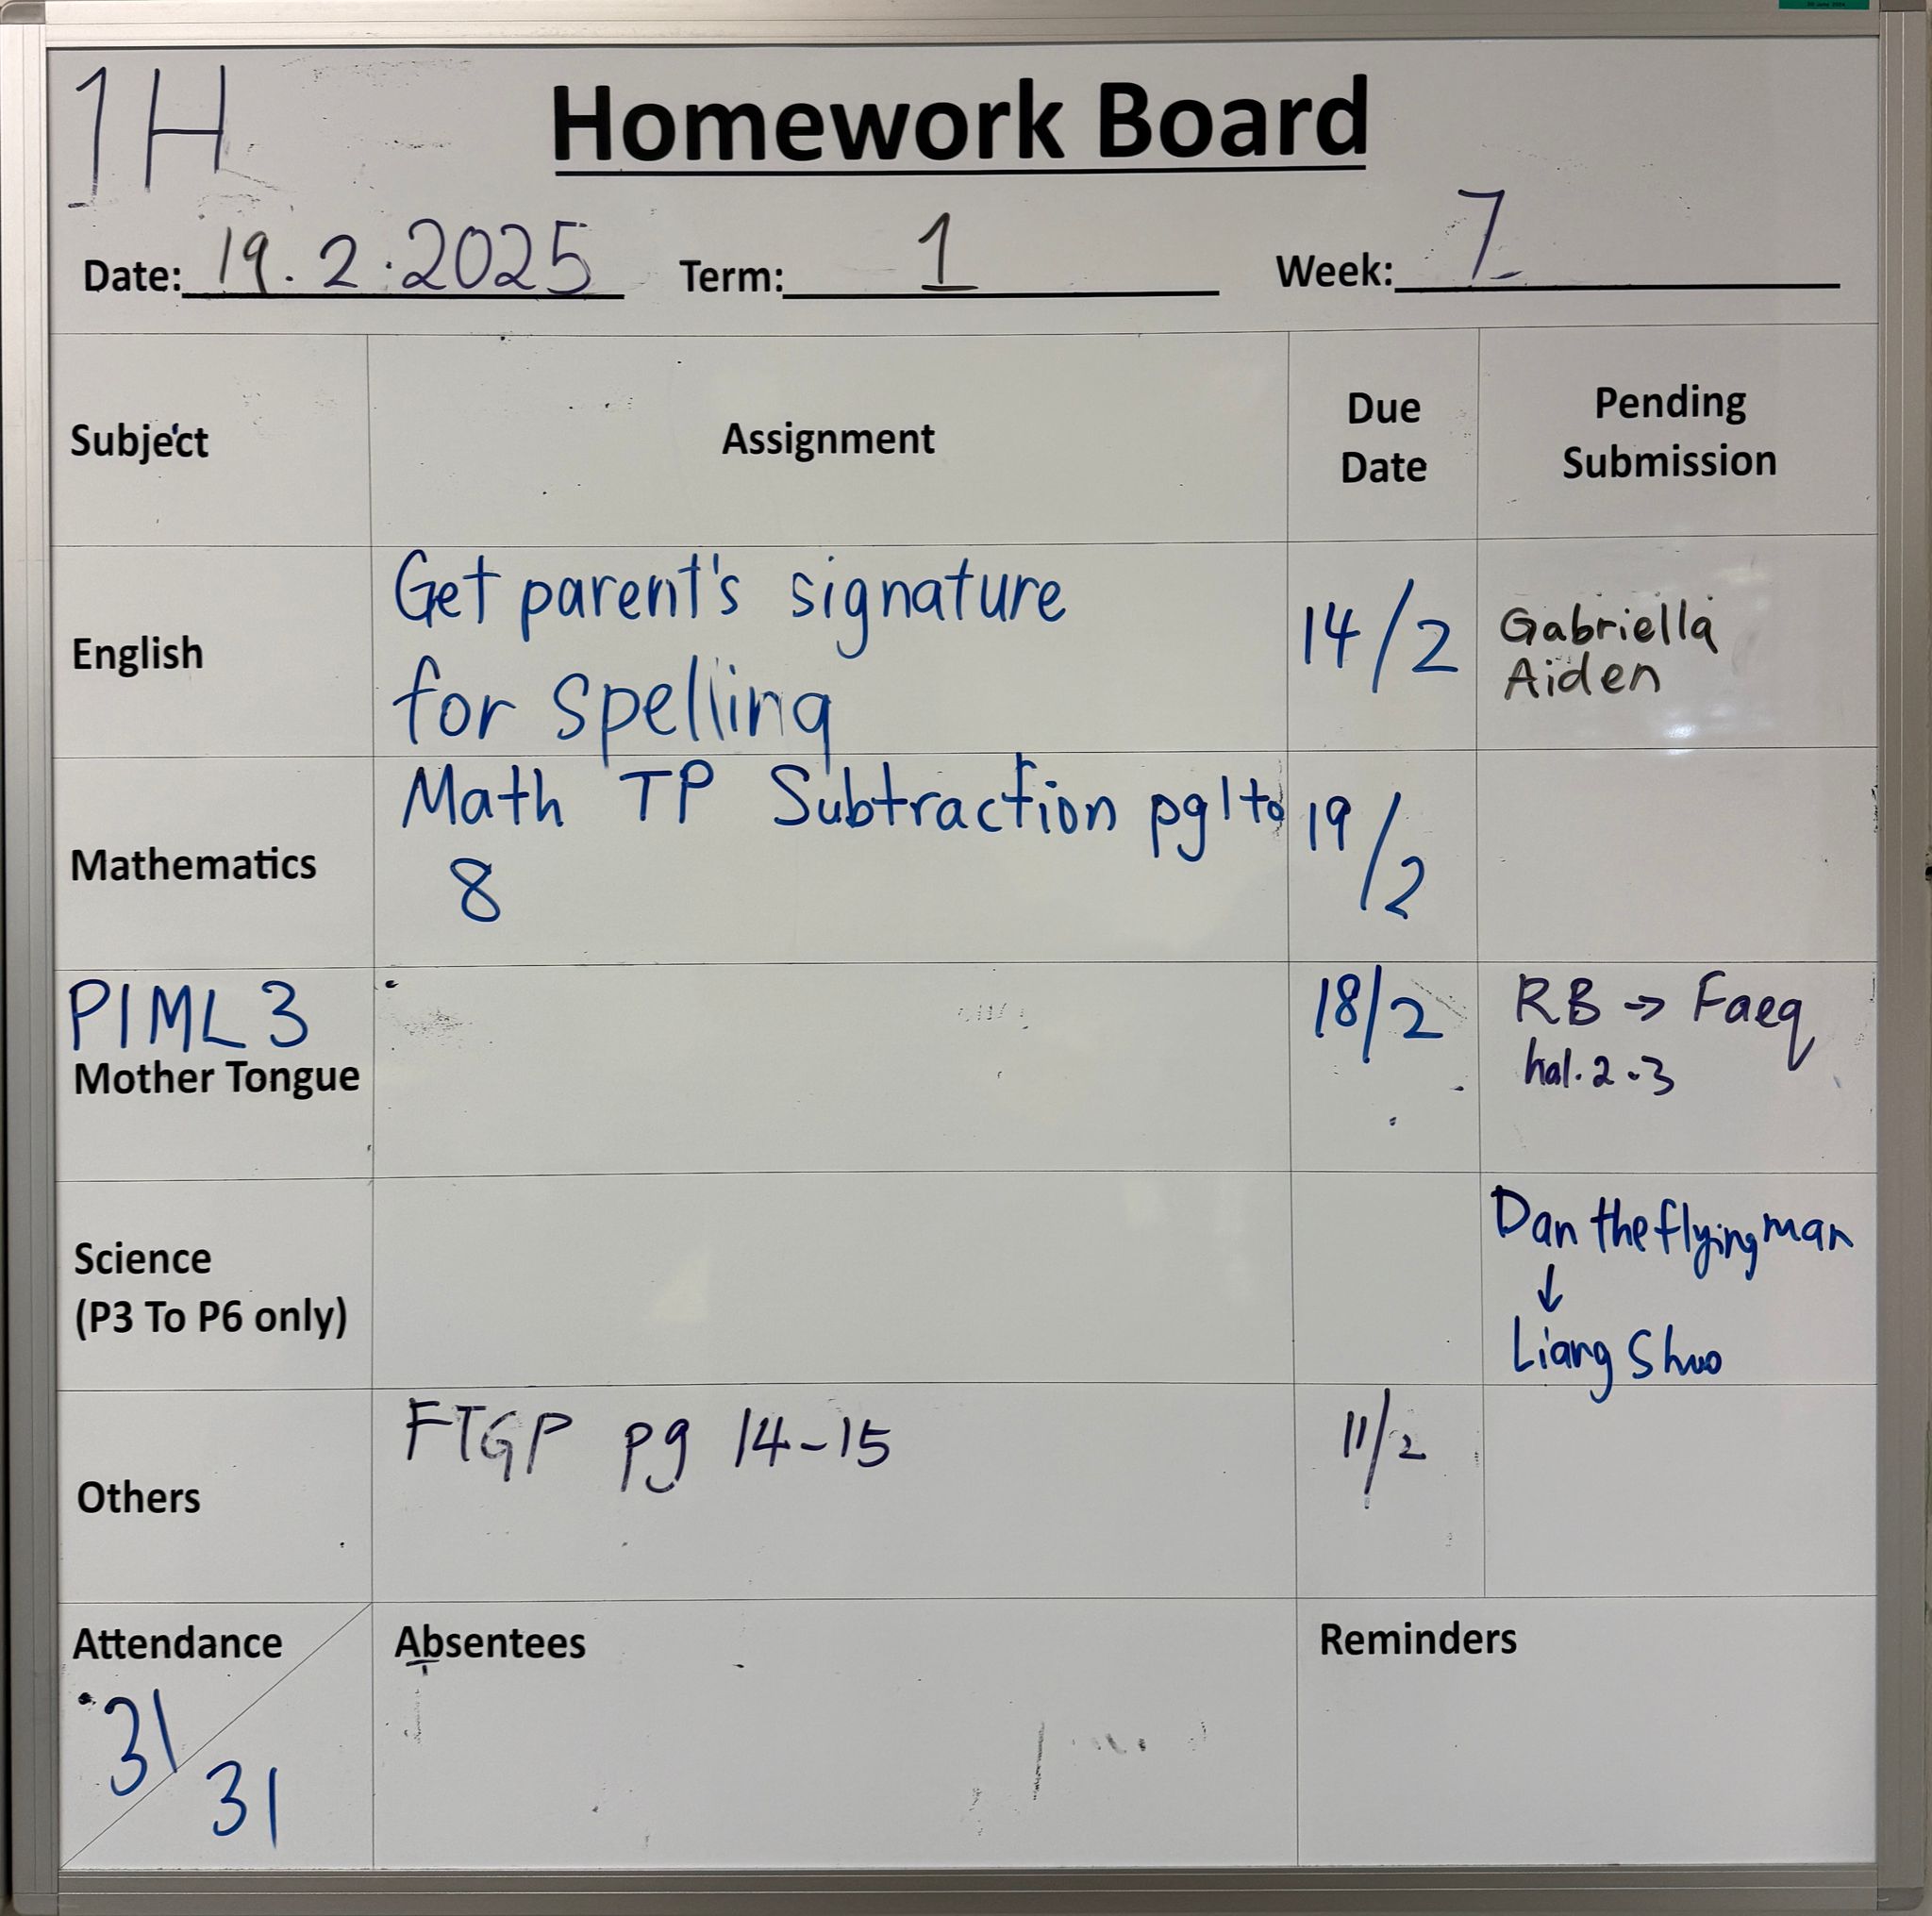 1H
Homework Board
Date: 19.2.2025 Term: 1 Week: 7
Subject Assignment Due Date Pending Submission
English
Get parent's signature
for spelling
14/2
Gabriella
Aiden
Mathematics
Math TP Subtraction pg 1 to
8
19/2
PIML 3
Mother Tongue
18/2
RB → Faeq
hal. 2-3
Science
(P3 To P6 only)
Dan the flying man
↓
Liang Shuo
Others
FTGP pg 14-15
11/2
Attendance
31/31
Absentees
Reminders